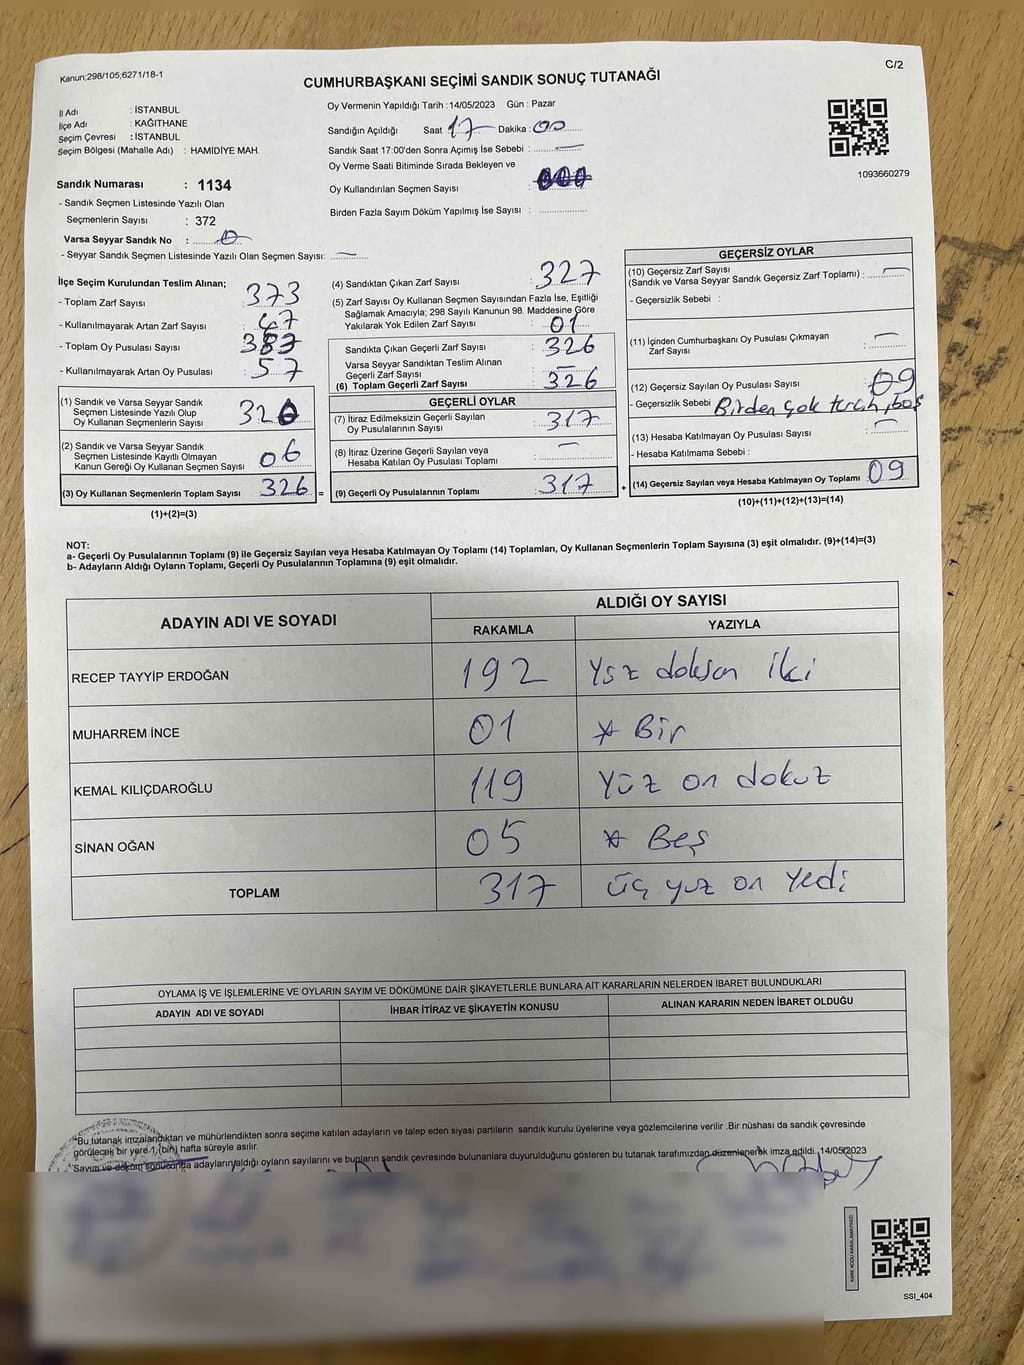 Kanun;298/105;6271/18-1
C/2
CUMHURBAŞKANI SEÇİMİ SANDIK SONUÇ TUTANAĞI
İl Adı : İSTANBUL
İlçe Adı : KAĞITHANE
Seçim Çevresi : İSTANBUL
Seçim Bölgesi (Mahalle Adı) : HAMİDİYE MAH.
Sandık Numarası : 1134
- Sandık Seçmen Listesinde Yazılı Olan
Seçmenlerin Sayısı : 372
Varsa Seyyar Sandık No : 0
- Seyyar Sandık Seçmen Listesinde Yazılı Olan Seçmen Sayısı: —
Oy Vermenin Yapıldığı Tarih :14/05/2023 Gün : Pazar
Sandığın Açıldığı Saat 17 Dakika : 00
Sandık Saat 17:00'den Sonra Açımış İse Sebebi : —
Oy Verme Saati Bitiminde Sırada Bekleyen ve
Oy Kullandırılan Seçmen Sayısı :
Birden Fazla Sayım Döküm Yapılmış İse Sayısı :
1093660279
İlçe Seçim Kurulundan Teslim Alınan;
- Toplam Zarf Sayısı : 373
- Kullanılmayarak Artan Zarf Sayısı : 47
- Toplam Oy Pusulası Sayısı : 383
- Kullanılmayarak Artan Oy Pusulası : 57
(1) Sandık ve Varsa Seyyar Sandık
Seçmen Listesinde Yazılı Olup
Oy Kullanan Seçmenlerin Sayısı 320
(2) Sandık ve Varsa Seyyar Sandık
Seçmen Listesinde Kayıtlı Olmayan
Kanun Gereği Oy Kullanan Seçmen Sayısı 06
(3) Oy Kullanan Seçmenlerin Toplam Sayısı 326 =
(1)+(2)=(3)
(4) Sandıktan Çıkan Zarf Sayısı : 327
(5) Zarf Sayısı Oy Kullanan Seçmen Sayısından Fazla İse, Eşitliği
Sağlamak Amacıyla; 298 Sayılı Kanunun 98. Maddesine Göre
Yakılarak Yok Edilen Zarf Sayısı : 01
Sandıkta Çıkan Geçerli Zarf Sayısı : 326
Varsa Seyyar Sandıktan Teslim Alınan
Geçerli Zarf Sayısı : —
(6) Toplam Geçerli Zarf Sayısı : 326
GEÇERLİ OYLAR
(7) İtiraz Edilmeksizin Geçerli Sayılan
Oy Pusulalarının Sayısı : 317
(8) İtiraz Üzerine Geçerli Sayılan veya
Hesaba Katılan Oy Pusulası Toplamı : —
(9) Geçerli Oy Pusulalarının Toplamı : 317 +
GEÇERSİZ OYLAR
(10) Geçersiz Zarf Sayısı
(Sandık ve Varsa Seyyar Sandık Geçersiz Zarf Toplamı) : —
- Geçersizlik Sebebi :
(11) İçinden Cumhurbaşkanı Oy Pusulası Çıkmayan
Zarf Sayısı : —
(12) Geçersiz Sayılan Oy Pusulası Sayısı : 09
- Geçersizlik Sebebi Birden çok tercih, boş
(13) Hesaba Katılmayan Oy Pusulası Sayısı : —
- Hesaba Katılmama Sebebi :
(14) Geçersiz Sayılan veya Hesaba Katılmayan Oy Toplamı : 09
(10)+(11)+(12)+(13)=(14)
NOT:
a- Geçerli Oy Pusulalarının Toplamı (9) ile Geçersiz Sayılan veya Hesaba Katılmayan Oy Toplamı (14) Toplamları, Oy Kullanan Seçmenlerin Toplam Sayısına (3) eşit olmalıdır. (9)+(14)=(3)
b- Adayların Aldığı Oyların Toplamı, Geçerli Oy Pusulalarının Toplamına (9) eşit olmalıdır.
ADAYIN ADI VE SOYADI
ALDIĞI OY SAYISI
RAKAMLA YAZIYLA
RECEP TAYYİP ERDOĞAN 192 Yüz doksan iki
MUHARREM İNCE 01 * Bir
KEMAL KILIÇDAROĞLU 119 Yüz on dokuz
SİNAN OĞAN 05 * Beş
TOPLAM 317 üç yuz on yedi
OYLAMA İŞ VE İŞLEMLERİNE VE OYLARIN SAYIM VE DÖKÜMÜNE DAİR ŞİKAYETLERLE BUNLARA AİT KARARLARIN NELERDEN İBARET BULUNDUKLARI
ADAYIN ADI VE SOYADI İHBAR İTİRAZ VE ŞİKAYETİN KONUSU ALINAN KARARIN NEDEN İBARET OLDUĞU
*Bu tutanak imzalandıktan ve mühürlendikten sonra seçime katılan adayların ve talep eden siyasi partilerin sandık kurulu üyelerine veya gözlemcilerine verilir .Bir nüshası da sandık çevresinde
görülecek bir yere 1 (bin) hafta süreyle asılır.
Sayım ve döküm sonucunda adayların aldığı oyların sayılarını ve bunların sandık çevresinde bulunanlara duyurulduğunu gösteren bu tutanak tarafımızdan düzenlenerek imza edildi. 14/05/2023
KARE KODU KARALAMAYINIZ!
SSI_404